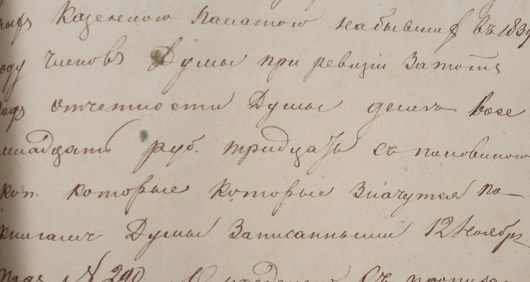 Казенною Палатою на бывших въ 183
году членовъ Думы при ревизіи за тотъ
годъ отчетности Думы денегъ восе
мнадцать руб. тридцать съ половиною
коп. которые которые значутся по
книгамъ Думы записанными 12 Ноября
№ 290